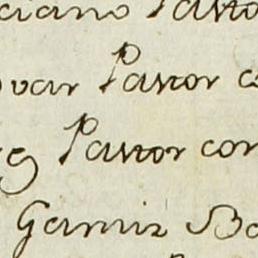 ciano Pastor
var Pastor co
Pastor con
Gamiz Ba